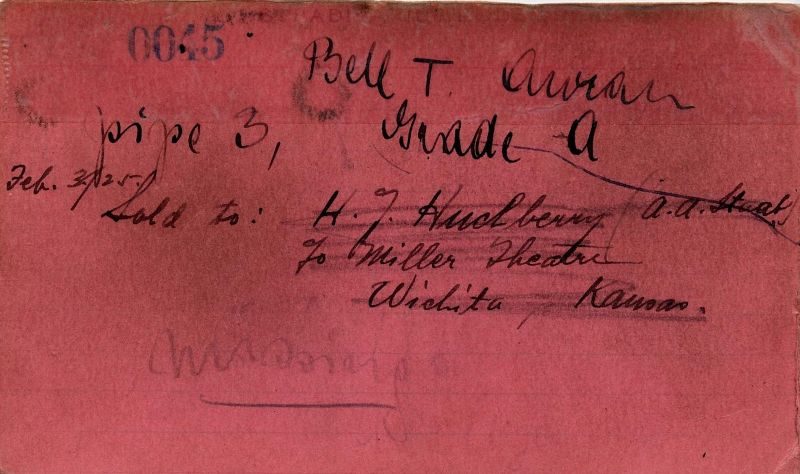 0045
Bell T.
pipe 3, Grade A
Feb. 3, 25.
Sold to: H. J. Huckberry (A.A. Stuat)
To Miller Theatre
Wichita, Kansas.
Missing